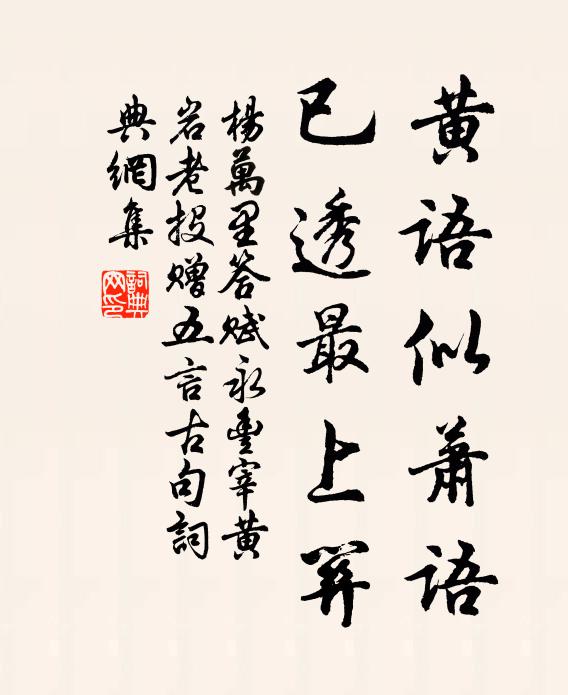 黄語似蕭語
已透最上關
楊萬里答賦永豐宰黄
岩老投贈五言古句詞
典網集
詞典
网印